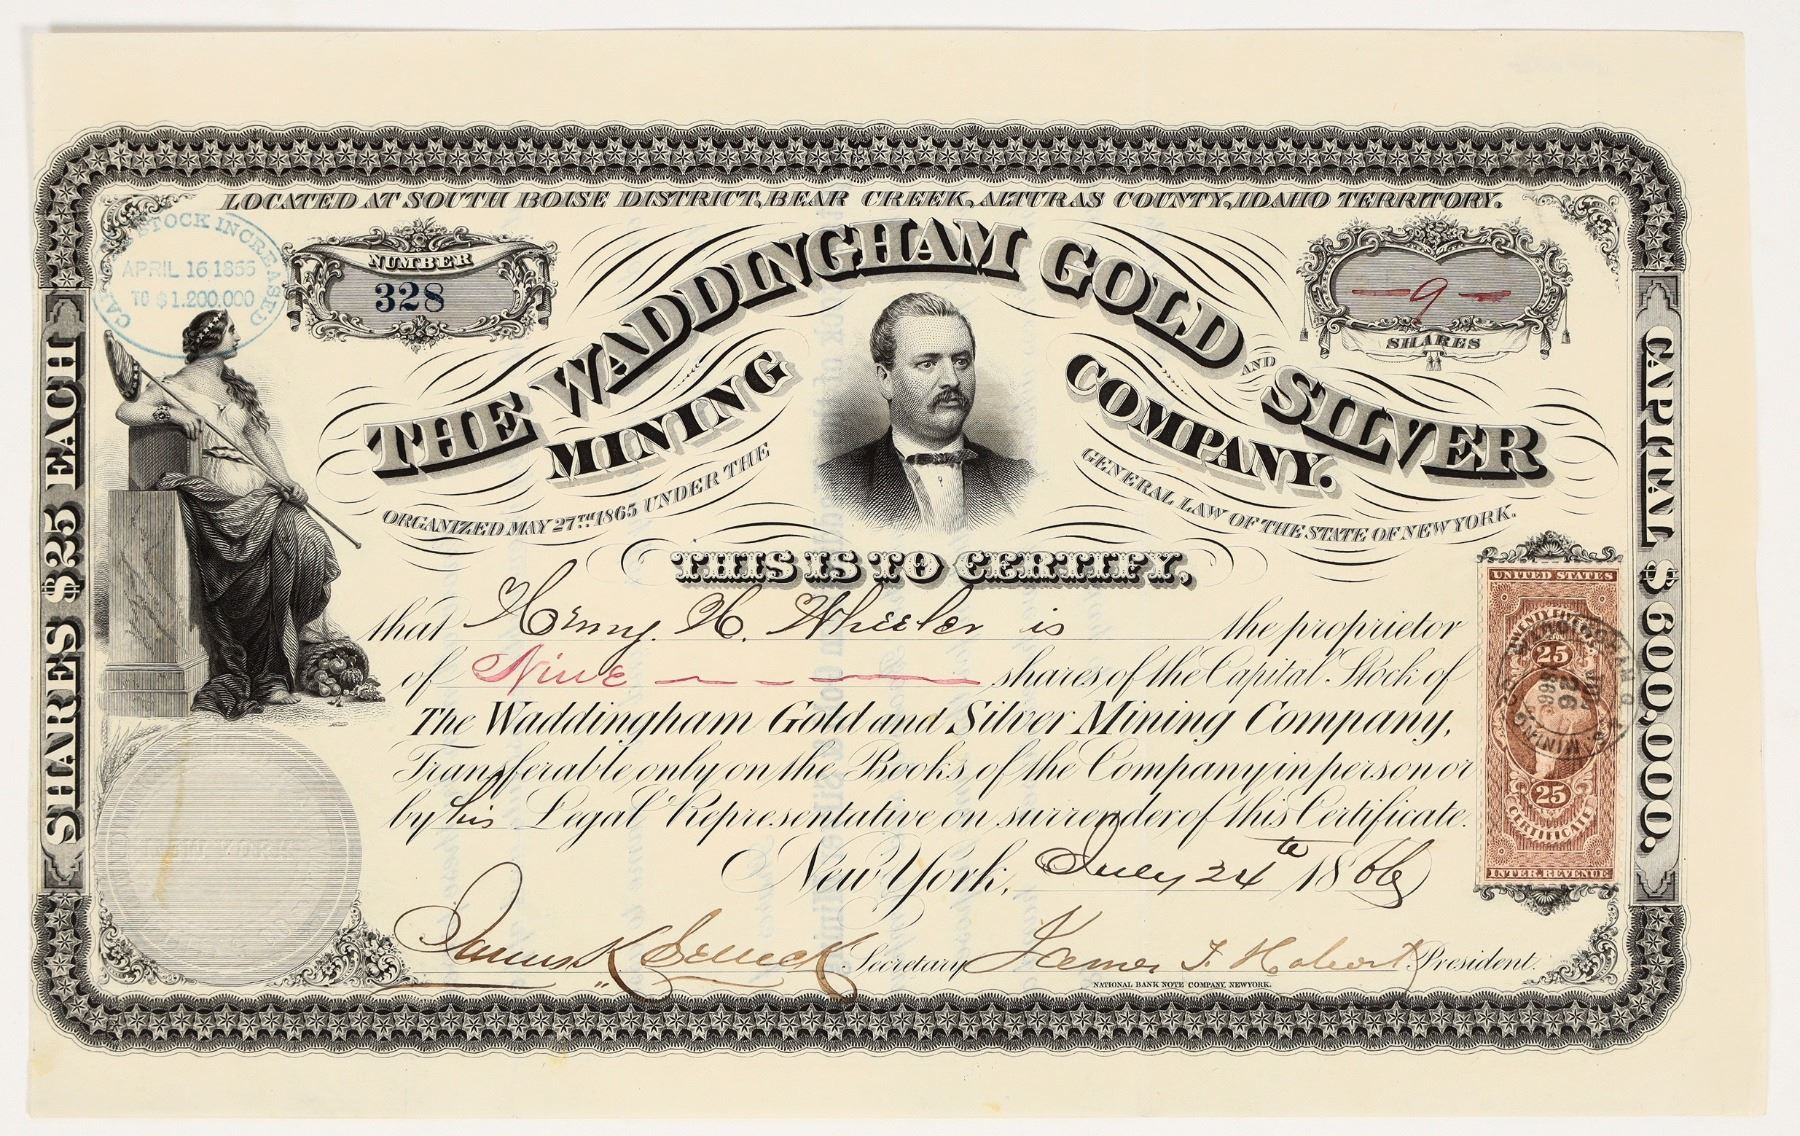 LOCATED AT SOUTH BOISE DISTRICT, BEAR CREEK, ALTURAS COUNTY, IDAHO TERRITORY.
CAPITAL STOCK INCREASED
APRIL 16 1866
TO $1.200.000
NUMBER
328
9
SHARES
THE WADDINGHAM GOLD AND SILVER
MINING COMPANY.
ORGANIZED MAY 27TH 1865 UNDER THE GENERAL LAW OF THE STATE OF NEW YORK.
SHARES $25 EACH
CAPITAL $600,000.
THIS IS TO CERTIFY,
that Henry H. Wheeler is the proprietor
of Nine shares of the Capital Stock of
The Waddingham Gold and Silver Mining Company,
Transferable only on the Books of the Company in person or
by his Legal Representative on surrender of this Certificate.
New York, July 24th 1866
James K. Selleck Secretary Homer F. Hobart President.
NATIONAL BANK NOTE COMPANY, NEW YORK.
UNITED STATES
TWENTY FIVE CENTS
25
WADDINGHAM G & S MINING CO
JUL
26
1866
25
CERTIFICATE
INTER. REVENUE